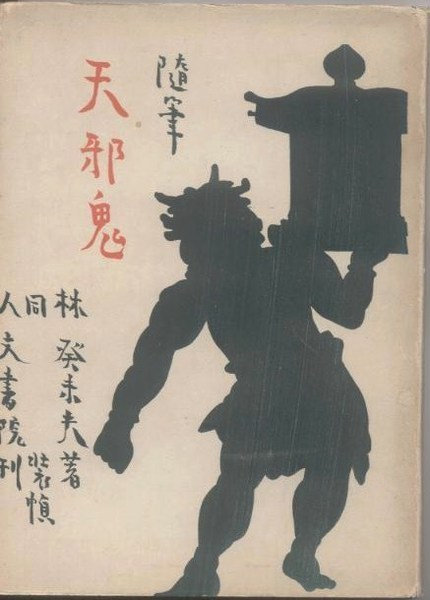 隨筆
天邪鬼
林癸未夫著
同装幀
人文書院刊